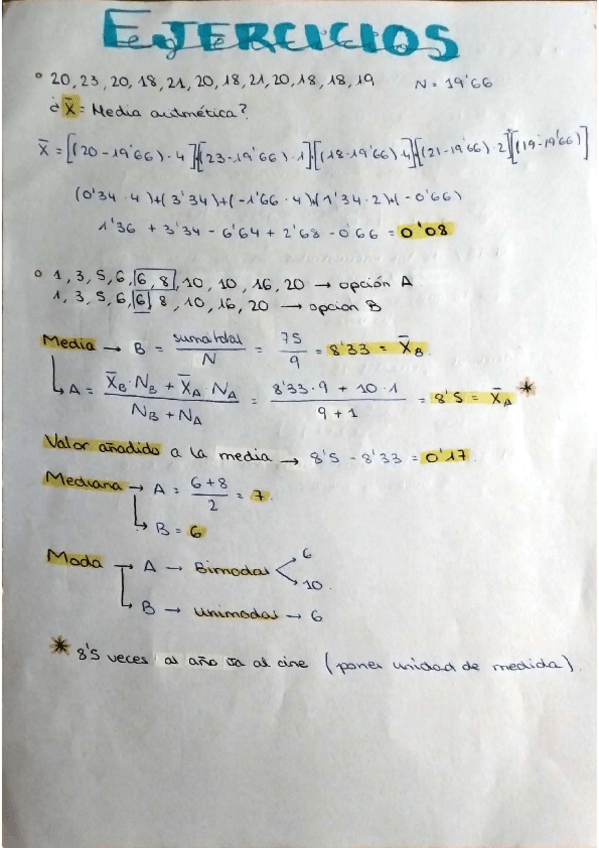 EJERCICIOS
º 20, 23, 20, 18, 21, 20, 18, 21, 20, 18, 18, 19 N = 19'66
¿ X̄ = Media aritmética?
X̄ = [(20-19'66)·4]+[(23-19'66)·1]+[(18-19'66)·4]+[(21-19'66)·2]+[(19-19'66)]
(0'34·4)+(3'34)+(-1'66·4)+(1'34·2)+(-0'66)
1'36 + 3'34 - 6'64 + 2'68 - 0'66 = 0'08
º 1, 3, 5, 6, 6, 8, 10, 10, 16, 20 → opción A
1, 3, 5, 6, 6, 8, 10, 16, 20 → opción B
Media → B = suma total / N = 75 / 9 = 8'33 = X̄B
A = X̄B·NB + X̄A·NA / NB + NA = 8'33·9 + 10·1 / 9+1 = 8'5 = X̄A *
Valor añadido a la media → 8'5 - 8'33 = 0'17.
Mediana → A = 6+8 / 2 = 7.
B = 6
Moda → A → Bimodal 6 10.
B → unimodal → 6
* 8'5 veces al año va al cine (poner unidad de medida).